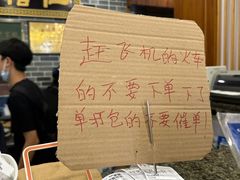 赶飞机的火车
的不要下单下了
单打包的不要催单！